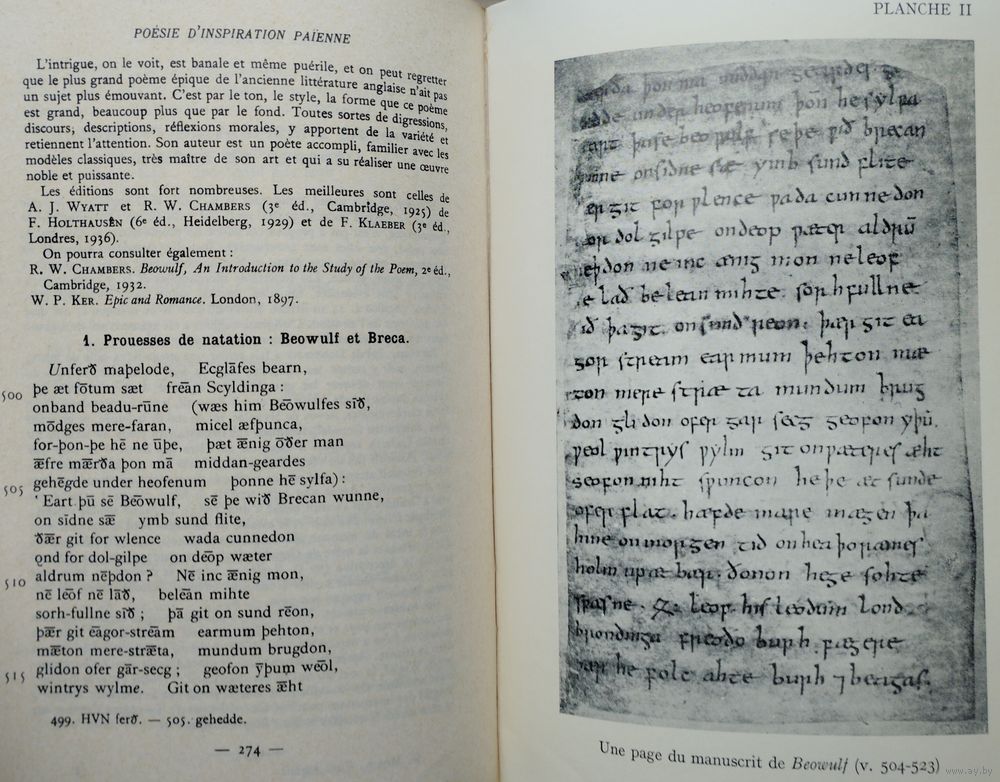 POÉSIE D'INSPIRATION PAÏENNE
L'intrigue, on le voit, est banale et même puérile, et on peut regretter
que le plus grand poème épique de l'ancienne littérature anglaise n'ait pas
un sujet plus émouvant. C'est par le ton, le style, la forme que ce poème
est grand, beaucoup plus que par le fond. Toutes sortes de digressions,
discours, descriptions, réflexions morales, y apportent de la variété et
retiennent l'attention. Son auteur est un poète accompli, familier avec les
modèles classiques, très maître de son art et qui a su réaliser une œuvre
noble et puissante.
Les éditions sont fort nombreuses. Les meilleures sont celles de
A. J. WYATT et R. W. CHAMBERS (3e éd., Cambridge, 1925) de
F. HOLTHAUSËN (6e éd., Heidelberg, 1929) et de F. KLAEBER (3e éd.,
Londres, 1936).
On pourra consulter également :
R. W. CHAMBERS. Beowulf, An Introduction to the Study of the Poem, 2e éd.,
Cambridge, 1932.
W. P. KER. Epic and Romance. London, 1897.
1. Prouesses de natation : Beowulf et Breca.
Unferð maþelode, Ecglāfes bearn,
500 þe æt fōtum sæt frēan Scyldinga :
onband beadu-rūne (wæs him Bēowulfes sīð,
mōdges mere-faran, micel æfþunca,
for-þon-þe hē ne ūþe, þæt ǣnig ōðer man
ǣfre mǣrða þon mā middan-geardes
505 gehēgde under heofenum þonne hē sylfa) :
'Eart þū sē Bēowulf, sē þe wið Brecan wunne,
on sīdne sǣ ymb sund flite,
ðǣr git for wlence wada cunnedon
ọnd for dol-gilpe on dēop wæter
510 aldrum nēþdon ? Nē inc ǣnig mon,
nē lēof nē lāð, belēan mihte
sorh-fullne sīð ; þā git on sund rēon,
þǣr git ēagor-strēam earmum þehton,
mǣton mere-strǣta, mundum brugdon,
515 glidon ofer gār-secg ; geofon ȳþum wēol,
wintrys wylme. Git on wæteres ǣht
499. HVN ferð. — 505. gehedde.
— 274 —
PLANCHE II
þon ma middan geardes ge
under heofenum þon̄ he sylfa
eart þu se beo ƿulf se þe ƿið brecan
ƿunne onsidne sæ ymb sund flite
ðær git for ƿlence ƿada cunnedon
for dol gilpe ondeop ƿæter aldrū
neþdon ne inc ænig mon ne leof
ne lað belean mihte sorh fullne
sið þa git on sund reon þær git ea
gor stream earmum þehton mæ
ton mere stræ ta mundum brug
don gli don ofer gar secg geofon yþū
ƿeol ƿintrys ƿylm git on ƿæteres æht
seofon niht sƿuncon he þe æt sunde
ofer flat. hæfde mare mægen þa
hine on morgen tid on heaþo ræmes
holm up æt bær. ðonon he ge sohte
sƿæsne. ᛟ. leof his leodum lond
brondinga freoðo burh fægere
þær he folc ahte burh ⁊ beagas.
Une page du manuscrit de Beowulf (v. 504-523)
www.ay.by